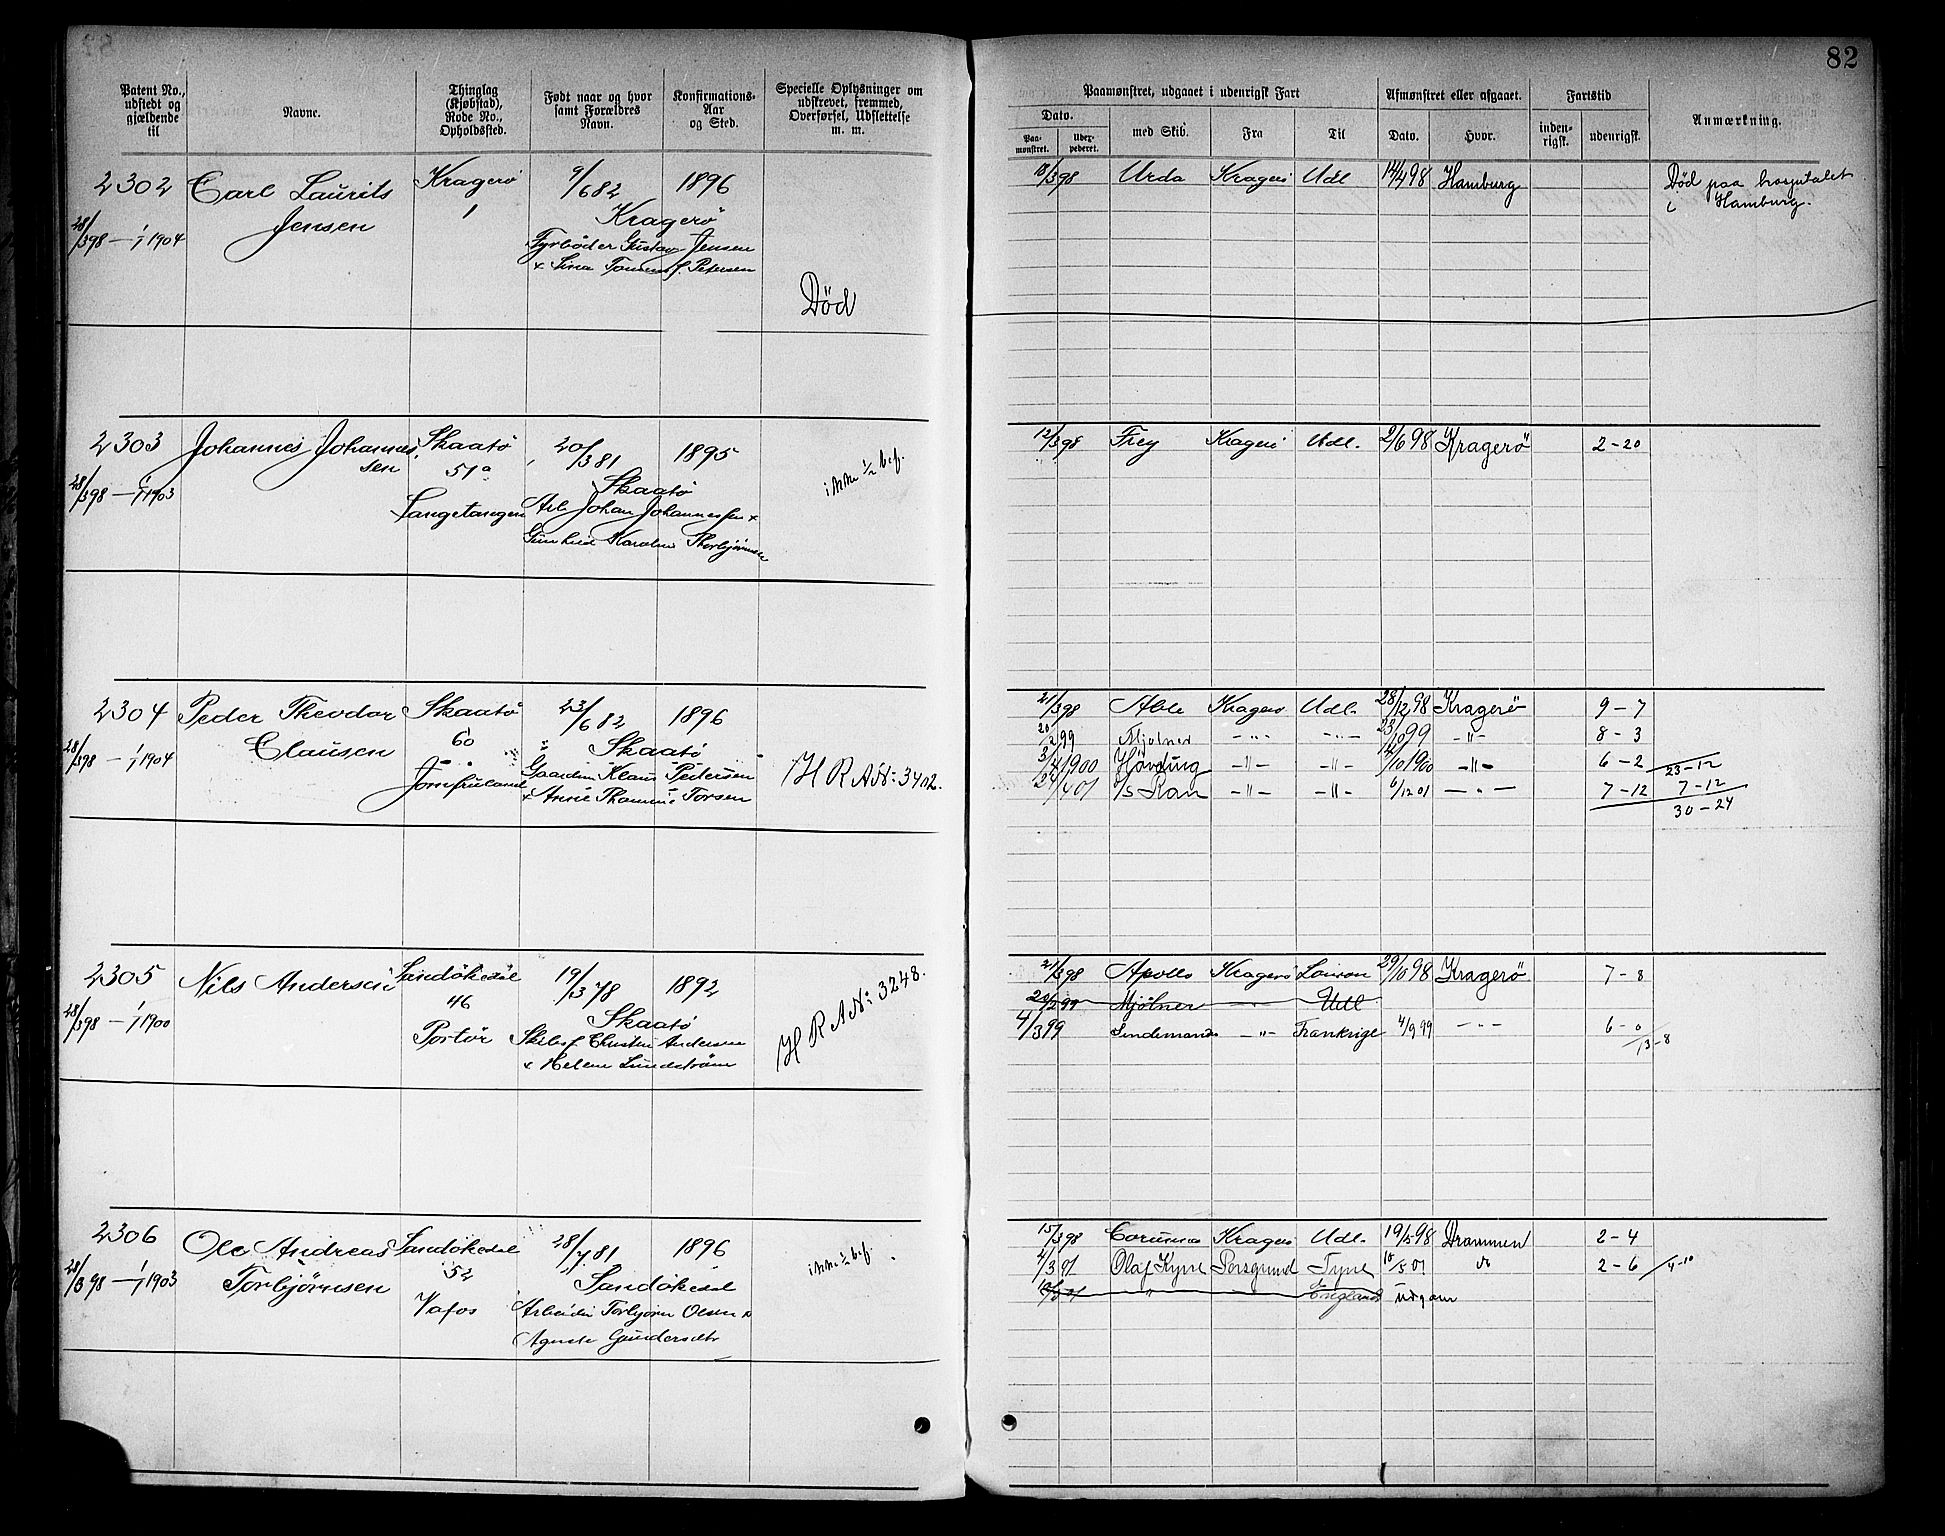 82
Patent No., udstedt og gjældende til
Navne.
Thinglag (Kjøbstad), Rode No., Opholdssted.
Født naar og hvor samt Forældres Navn.
Konfirmations-Aar og Sted.
Specielle Oplysninger om udskrevet, fremmed, Overførsel, Udslettelse m. m.
Paamønstret, udgaaet i udenrigsk Fart
Dato.
Paa-mønstret.
med Skib.
Fra
Til
Afmønstret eller afgaaet.
Dato.
Hvor.
Fartstid
inden-rigsk.
udenrigsk.
Anmærkning.
2302 Carl Laurits Kragerø 9/6 82 1896
28/3 98 – 1/1 1904 Jensen 1 Kragerø
Fyrbøder Gustav Jensen
Petersen
Død
18/3 98 Urda Kragerø Udl 14/9 98 Hamburg Død paa hospitalet
i Hamburg.
2303 Johannes Johannes- Skaatø 20/3 81 1895
sen 51a Skaatø
28/3 98 – 1/1 1903 Langetangen Arb. Johan Johannessen +
Karoline Thorbjørnsen
12/3 98 Frey Kragerø Udl. 2/6 98 Kragerø 2–20
2304 Peder Theodor Skaatø 23/6 82 1896
28/3 98 – 1/1 1904 Clausen 60 Skaatø
Jomfruland Klaus Pedersen
+ Anne Torsen
H R A N: 3402.
21/3 98 Able Kragerø Udl. 28/12 98 Kragerø 9–7
20/2 99 Mjølner –"– –"– 23/10 99 –"– 8–3
3/4 1900 Høvding –"– –"– 1900 –"– 6–2 23–12
24/4 01 S/S Ran –"– –"– 6/12 01 –"– 7–12 7–12
30–24
2305 Nils Andersen Sandøkedal 19/3 78 1892
28/3 98 – 1/1 1900 46 Skaatø
Portør Andersen
+ Helene Lundstrøm
H R A N: 3248.
21/3 98 Apollo Kragerø 29/10 98 Kragerø 7–8
20/2 99 Mjølner –"– Udl
4/3 99 Lindemands –"– Frankrige 4/9 99 –"– 6–0
13–8
2306 Ole Andreas Sandøkedal 28/7 81 1896
28/3 98 – 1/1 1903 Torbjørnsen 52 Sandøkedal
Vafos Arbeider Torbjørn Olsen &
Gundersdtr
15/3 98 Kragerø Udl. 19/5 98 Drammen 2–4
Olaf Kyrre Porsgrund Tyne 10/5 01 do 2–6 4–10
" England udgaar